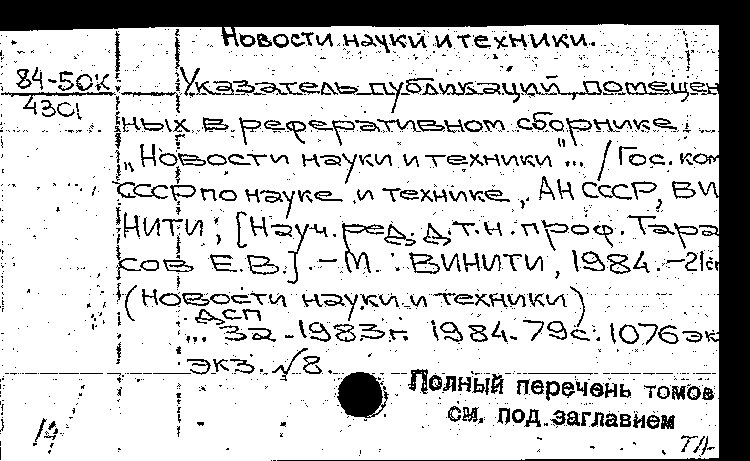 Новости науки и техники.
84-50К Указатель публикаций, помещен
4301
ных в реферативном сборнике
„Новости науки и техники"... / Гос. ком
СССР по науке и технике, АН СССР, ВИ
НИТИ; [Науч. ред. д.т.н. проф. Тара
сов Е.В.]. – М. : ВИНИТИ, 1984. – 21см
(Новости науки и техники)
ДСП
... за 1983г. 1984. 79с. 1076 эк
экз. √8.
Полный перечень томов
см. под заглавием
14
ТА